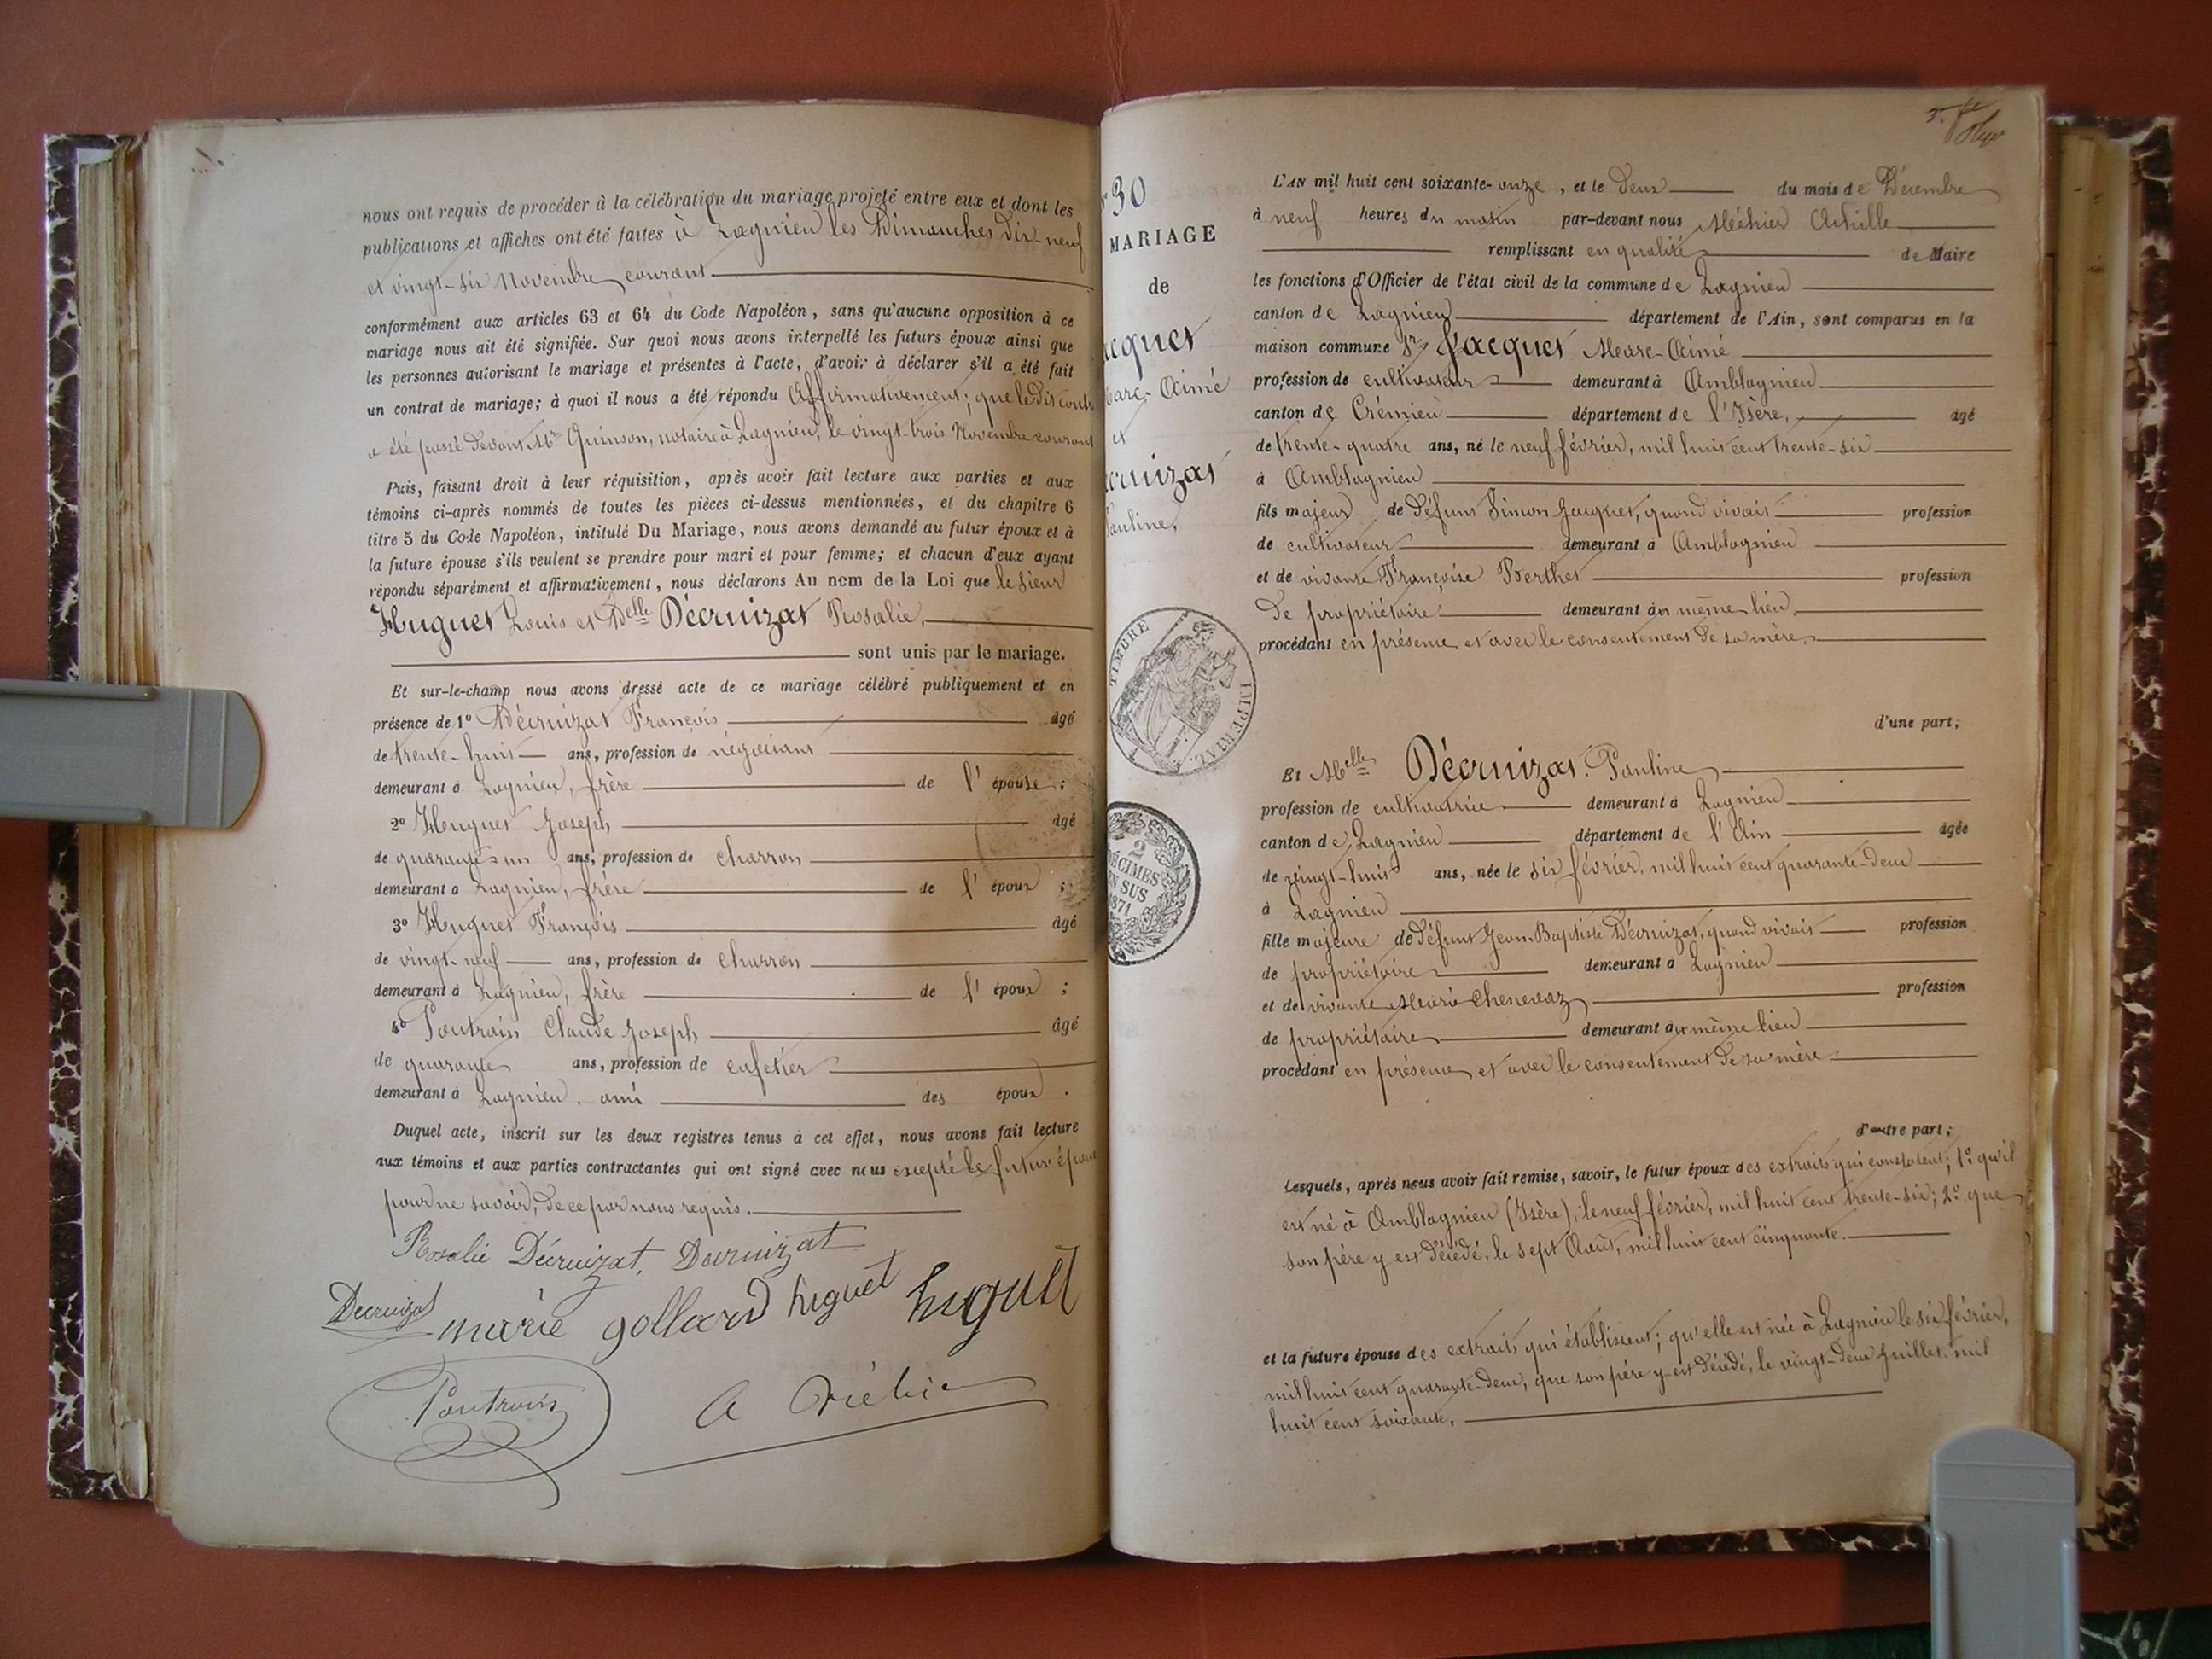 nous ont requis de procéder à la célébration du mariage projeté entre eux et dont les
publications et affiches ont été faites à Lagnieu les Dimanches dix-neuf
et vingt-six Novembre courant
conformément aux articles 63 et 64 du Code Napoléon, sans qu'aucune opposition à ce
mariage nous ait été signifiée. Sur quoi nous avons interpellé les futurs époux ainsi que
les personnes autorisant le mariage et présentes à l'acte, d'avoir à déclarer s'il a été fait
un contrat de mariage; à quoi il nous a été répondu Affirmativement; que ledit contr
a été passé devant Me Quinson, notaire à Lagnieu, le vingt-trois Novembre courant
Puis, faisant droit à leur réquisition, après avoir fait lecture aux parties et aux
témoins ci-après nommés de toutes les pièces ci-dessus mentionnées, et du chapitre 6
titre 5 du Code Napoléon, intitulé Du Mariage, nous avons demandé au futur époux et à
la future épouse s'ils veulent se prendre pour mari et pour femme; et chacun d'eux ayant
répondu séparément et affirmativement, nous déclarons Au nom de la Loi que le sieur
Huguet Louis et Delle Décruizat Rosalie,
sont unis par le mariage.
Et sur-le-champ nous avons dressé acte de ce mariage célébré publiquement et en
présence de 1° Décruizat François âgé
de trente-huit ans, profession de négociant
demeurant à Lagnieu, frère de l'épouse;
2° Huguet Joseph âgé
de quarante-un ans, profession de charron
demeurant à Lagnieu, frère de l'époux;
3° Huguet François âgé
de vingt-neuf ans, profession de charron
demeurant à Lagnieu, frère de l'époux;
4° Poutrain Claude Joseph âgé
de quarante ans, profession de cafetier
demeurant à Lagnieu. ami des époux.
Duquel acte, inscrit sur les deux registres tenus à cet effet, nous avons fait lecture
aux témoins et aux parties contractantes qui ont signé avec nous excepté le futur époux
pour ne savoir, de ce par nous requis.
Rosalie Décruizat, Decruizat
Decruizat marie gollard huguet huguet
Poutrain
30
MARIAGE
de
acques
Marc-Aimé
et
écruizat
Pauline,
TIMBRE IMPERIAL
2 DÉCIMES EN SUS 1871
L'AN mil huit cent soixante-onze, et le deux du mois de Décembre
à neuf heures du matin par-devant nous Méhier Achille
remplissant en qualité de Maire
les fonctions d'Officier de l'état civil de la commune de Lagnieu
canton de Lagnieu département de l'Ain, sont comparus en la
maison commune Sr Jacques Marc-Aimé
profession de cultivateur demeurant à Amblagnieu
canton de Crémieu département de l'Isère, âgé
de trente-quatre ans, né le neuf février, mil huit cent trente-six
à Amblagnieu
fils majeur de défunt Simon Jacques, quand vivait profession
de cultivateur demeurant à Amblagnieu
et de vivante Françoise Berthet profession
de propriétaire demeurant au même lieu
procédant en présence et avec le consentement de sa mère
d'une part,
Et Melle Décruizat Pauline
profession de cultivatrice demeurant à Lagnieu
canton de Lagnieu département de l'Ain âgée
de vingt-huit ans, née le six février, mil huit cent quarante-deux
à Lagnieu
fille majeure de défunt Jean-Baptiste Décruizat, quand vivait profession
de propriétaire demeurant à Lagnieu
et de vivante Marie Chenevaz profession
de propriétaire demeurant au même lieu
procédant en présence et avec le consentement de sa mère
d'autre part;
Lesquels, après nous avoir fait remise, savoir, le futur époux des extraits qui constatent; 1° qu'il
est né à Amblagnieu (Isère), le neuf février, mil huit cent trente-six; 2° que
son père y est décédé, le sept Août, mil huit cent cinquante.
et la future épouse des extraits qui établissent; qu'elle est née à Lagnieu le six février,
mil huit cent quarante-deux, que son père y est décédé, le vingt-deux Juillet, mil
huit cent soixante.